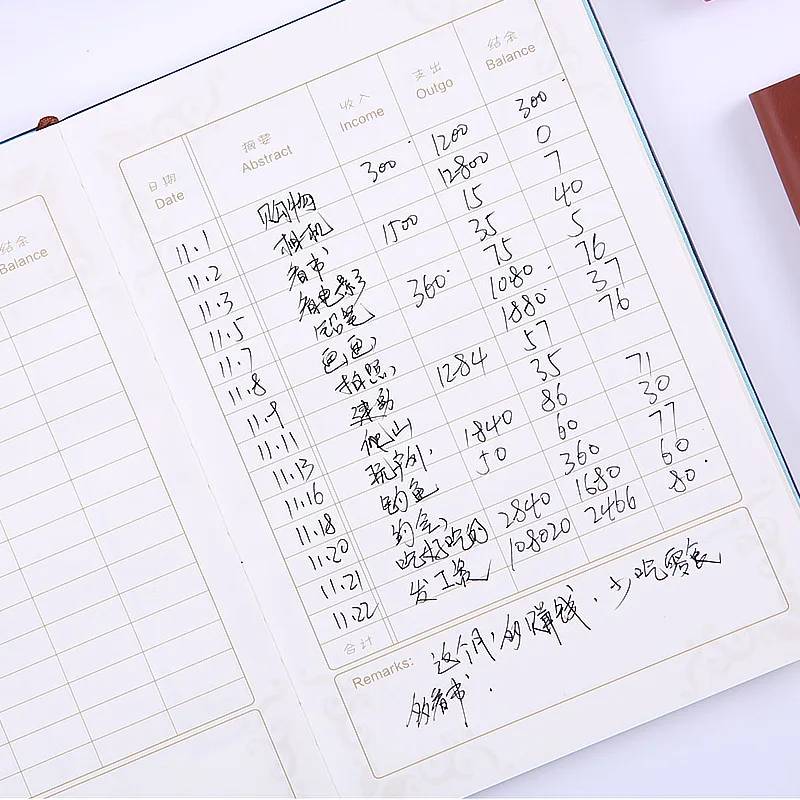 结余
Balance
日期 摘要 收入 支出 结余
Date Abstract Income Outgo Balance
11.1 购物 300. 1200 300.
11.2 相机 12800 0
11.3 看书 1500 15 7
11.5 看电影 35 40
11.7 铅笔 360. 75 5
11.8 画画 1080. 76
11.9 拍照 1880. 37
11.11 运动 1284 57 76
11.13 爬山 35
11.16 1840 86 71
11.18 钓鱼 50 60 30
11.20 约会 360 77
11.21 吃好吃的 2840 1680 60
11.22 发工资 108020 2466 80.
合计
Remarks: 这个月，多赚钱．少吃零食
多看书．